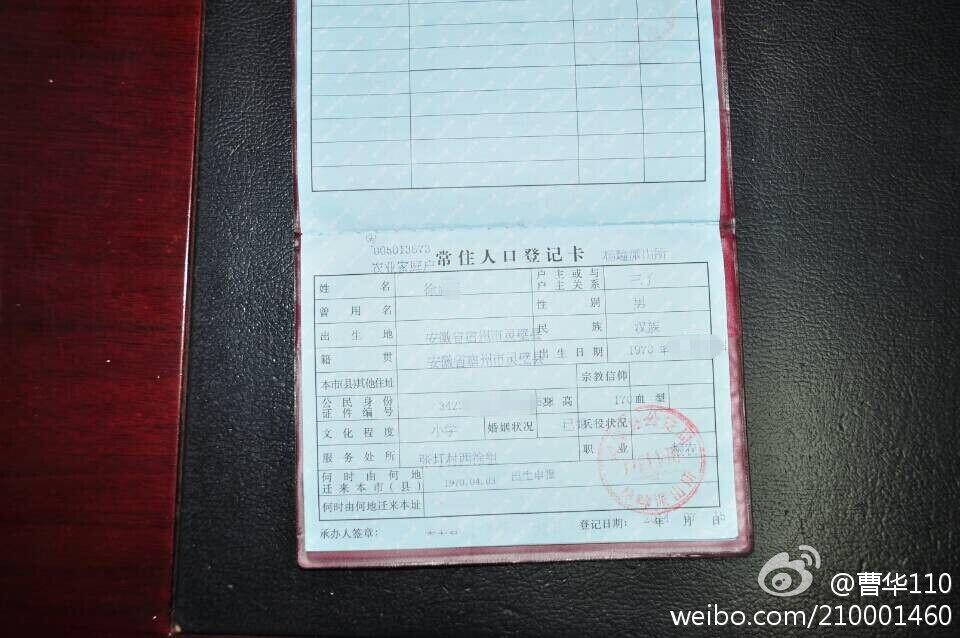 005013673
常住人口登记卡
农业家庭户
姓名 徐 户主或与户主关系 三子
曾用名 性别 男
出生地 安徽省宿州市灵璧县 民族 汉族
籍贯 安徽省宿州市灵璧县 出生日期 1970年
本市(县)其他住址 宗教信仰
公民身份证件编号 342 身高 170 血型
文化程度 小学 婚姻状况 已 兵役状况
服务处所 职业
何时由何地迁来本市(县) 1970.04.03 出生申报
何时由何地迁来本址
承办人签章: 登记日期: 年 月 日
@曹华110
weibo.com/210001460